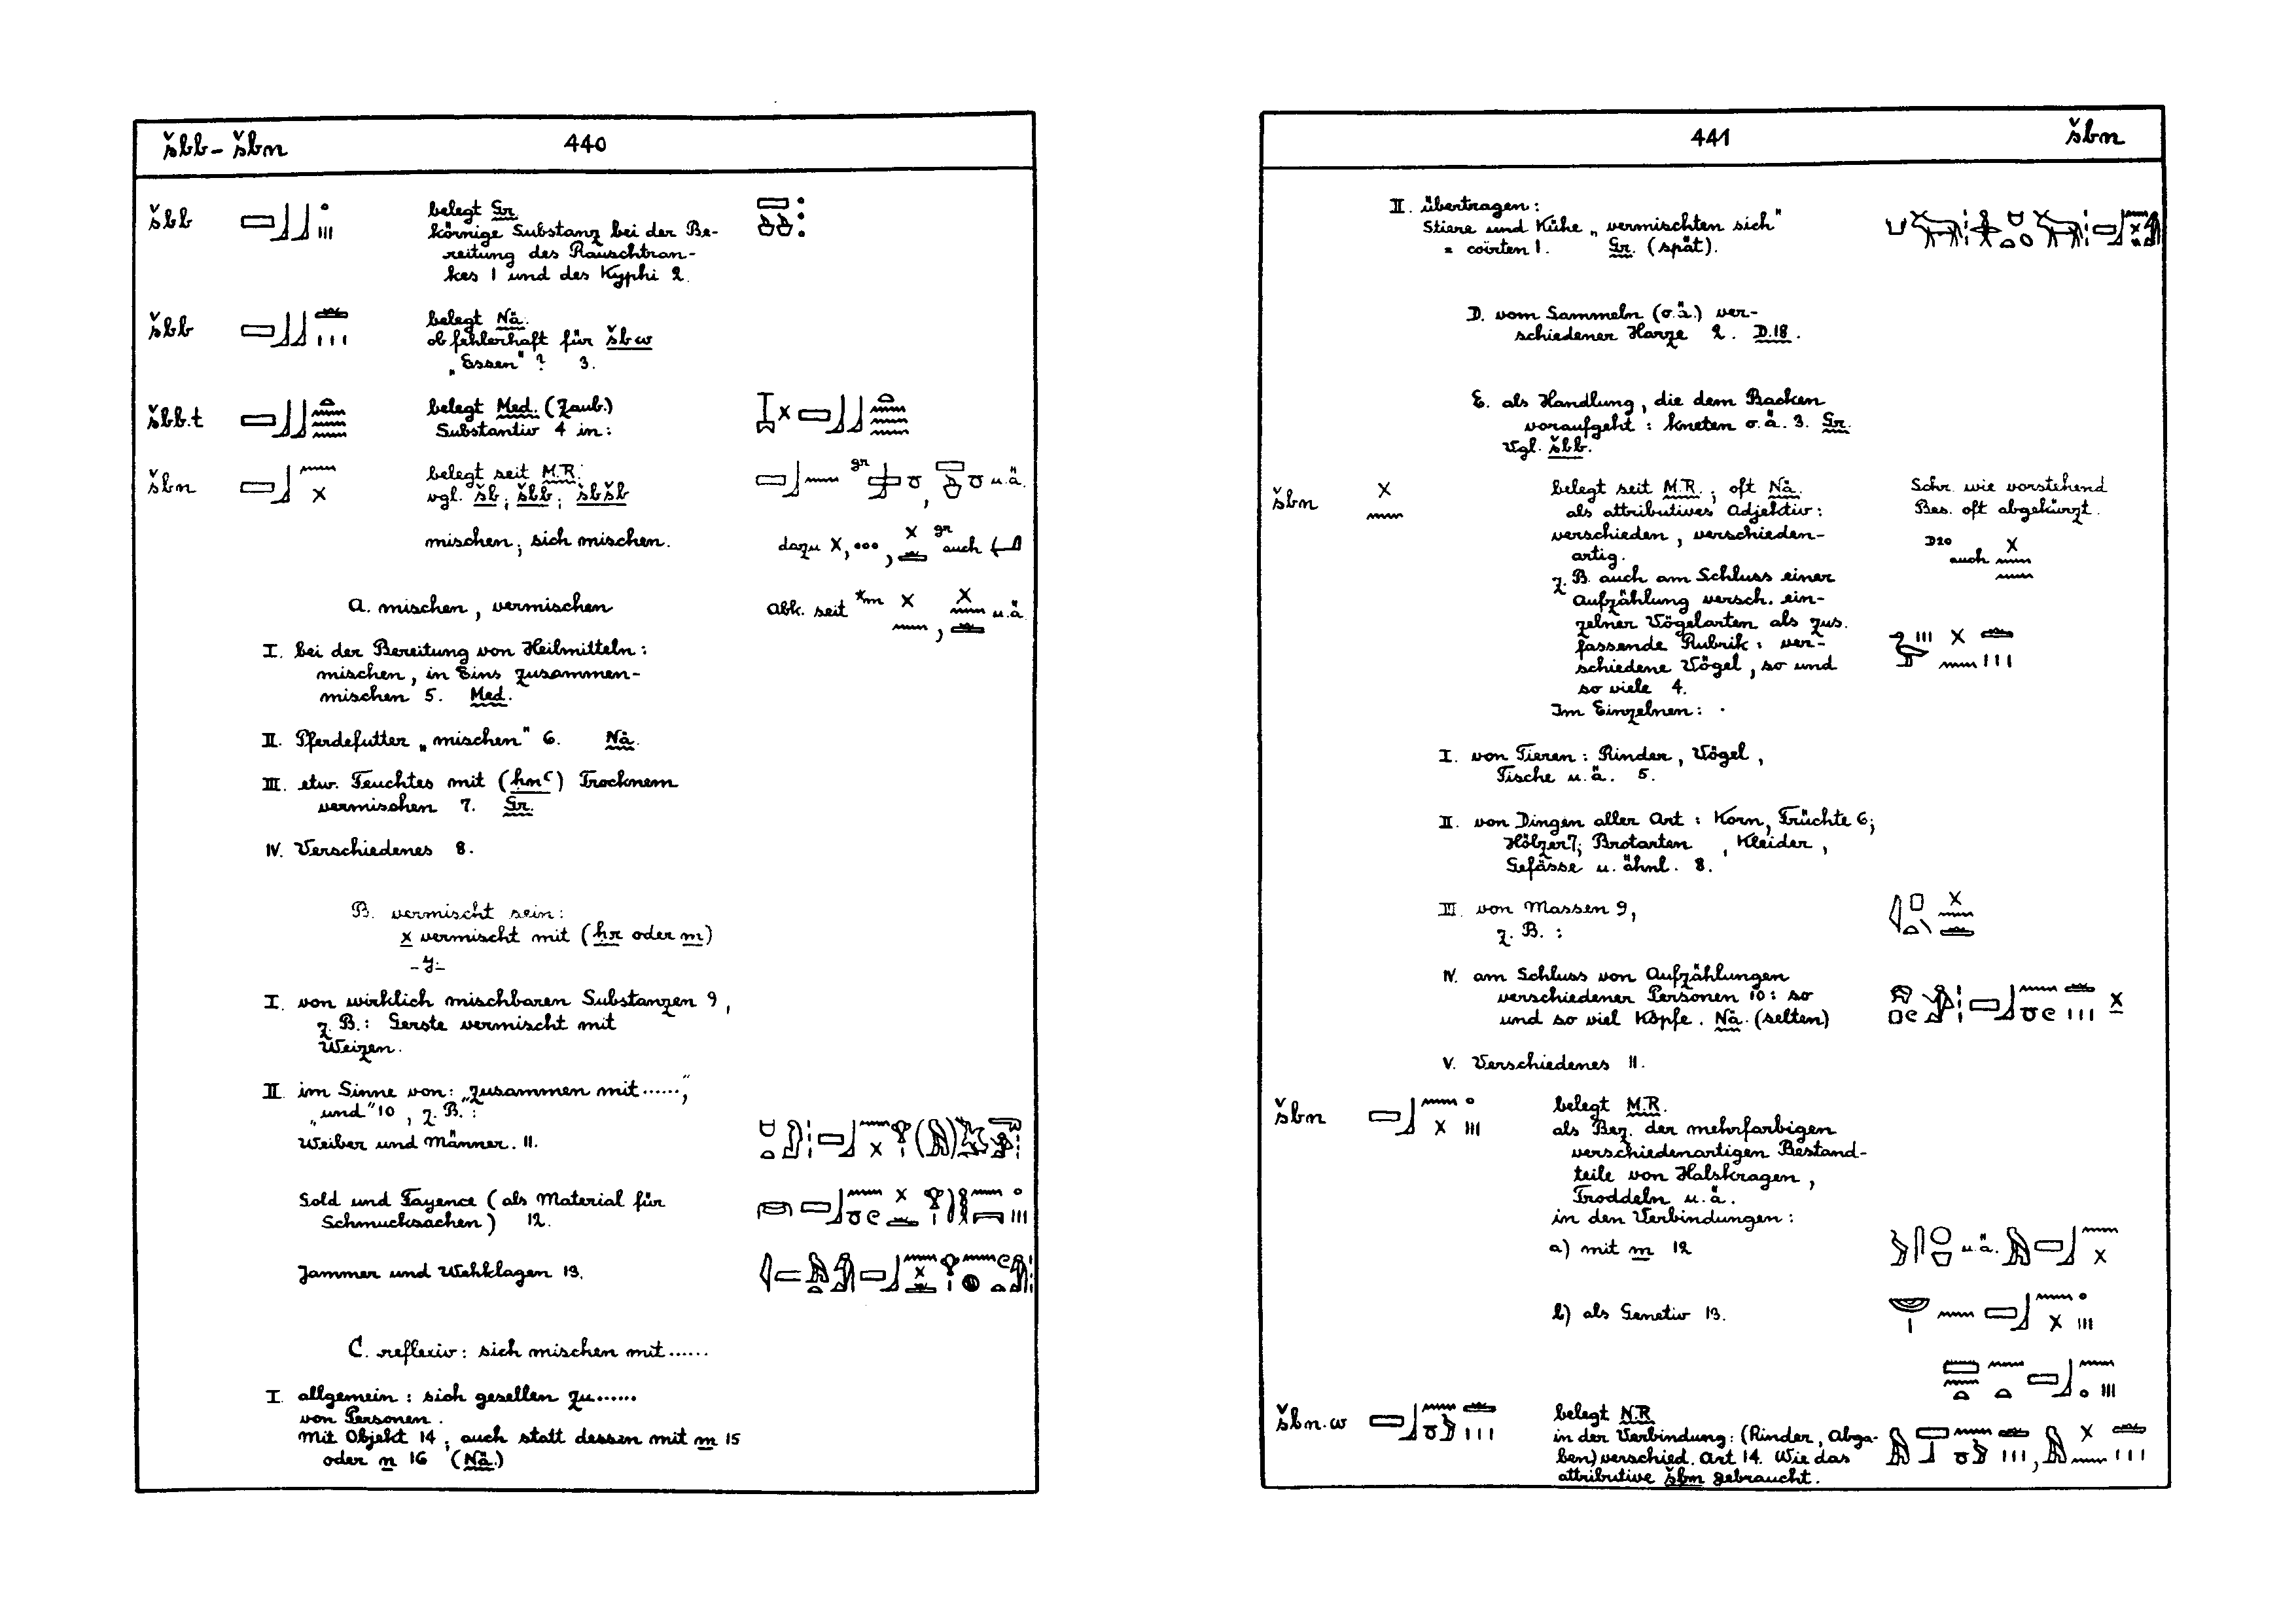 šbb – šbn 440
šbb belegt Gr.
körnige Substanz bei der Be-
reitung des Rauschtran-
kes 1 und des Kyphi 2.
šbb belegt Nä.
ob fehlerhaft für šbw
„Essen“? 3.
šbb.t belegt Med. (Zaub.)
Substantiv 4 in:
šbn belegt seit M.R.
vgl. šb; šbb; šbšb gr u.ä.
mischen; sich mischen. dazu X, ..., gr auch
A. mischen, vermischen Abk. seit u.ä.
I. bei der Bereitung von Heilmitteln:
mischen, in Eins zusammen-
mischen 5. Med.
II. Pferdefutter „mischen“ 6. Nä.
III. etw. Feuchtes mit (ḥnꜥ) Trocknem
vermischen 7. Gr.
IV. Verschiedenes 8.
B. vermischt sein:
x vermischt mit (ḥr oder m)
-y-
I. von wirklich mischbaren Substanzen 9,
z.B.: Gerste vermischt mit
Weizen.
II. im Sinne von: „zusammen mit......“,
„und“ 10, z.B.:
Weiber und Männer. 11.
Gold und Fayence (als Material für
Schmucksachen) 12.
Jammer und Wehklagen 13.
C. reflexiv: sich mischen mit......
I. allgemein: sich gesellen zu......
von Personen.
Mit Objekt 14; auch statt dessen mit m 15
oder n 16 (Nä.)
441 šbn
II. übertragen:
Stiere und Kühe „vermischten sich“
= coirten 1. Gr. (spät).
D. vom Sammeln (o.ä.) ver-
schiedener Harze 2. D.18.
E. als Handlung, die dem Backen
voraufgeht: kneten o.ä. 3. Gr.
Vgl. šbb.
šbn belegt seit M.R.; oft Nä. Schr. wie vorstehend
als attributives Adjektiv: Bes. oft abgekürzt.
verschieden, verschieden-
artig. D20 auch
z.B. auch am Schluss einer
Aufzählung versch. ein-
zelner Vögelarten als zus.
fassende Rubrik: ver-
schiedene Vögel, so und
so viele 4.
Im Einzelnen:
I. von Tieren: Rinder, Vögel,
Fische u.ä. 5.
II. von Dingen aller Art: Korn, Früchte 6;
Hölzer 7; Brotarten, Kleider,
Gefässe u. ähnl. 8.
III. von Massen 9,
z.B.:
IV. am Schluss von Aufzählungen
verschiedener Personen 10: so
und so viel Köpfe. Nä. (selten)
V. Verschiedenes 11.
šbn belegt M.R.
als Bez. der mehrfarbigen
verschiedenartigen Bestand-
teile von Halskragen,
Troddeln u.ä.
in den Verbindungen:
a) mit m 12 u.ä.
b) als Genetiv 13.
šbn.w belegt N.R
in der Verbindung: (Rinder, Abga-
ben) verschied. Art 14. Wie das
attributive šbn gebraucht.